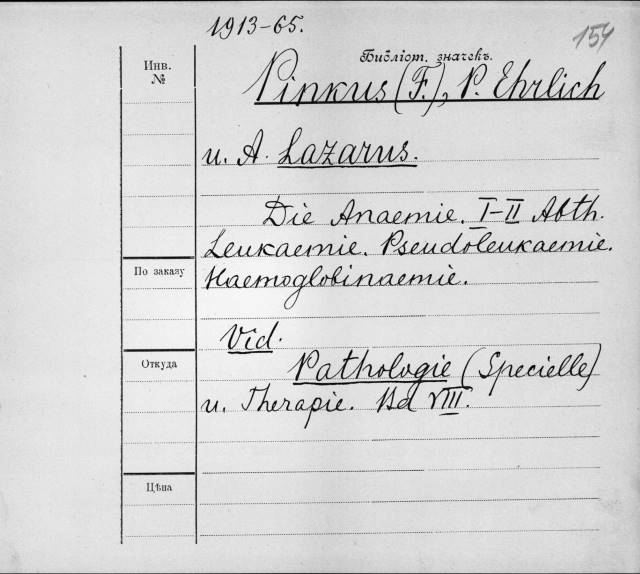 1913-65.
154
Библіот. значекъ.
Инв.
№
Pinkus (F.), P. Ehrlich
u. A. Lazarus.
Die Anaemie. I-II Abth.
Leukaemie. Pseudoleukaemie.
По заказу
Haemoglobinaemie.
Vid.
Откуда
Pathologie (Specielle)
u. Therapie. Bd VIII.
Цѣна